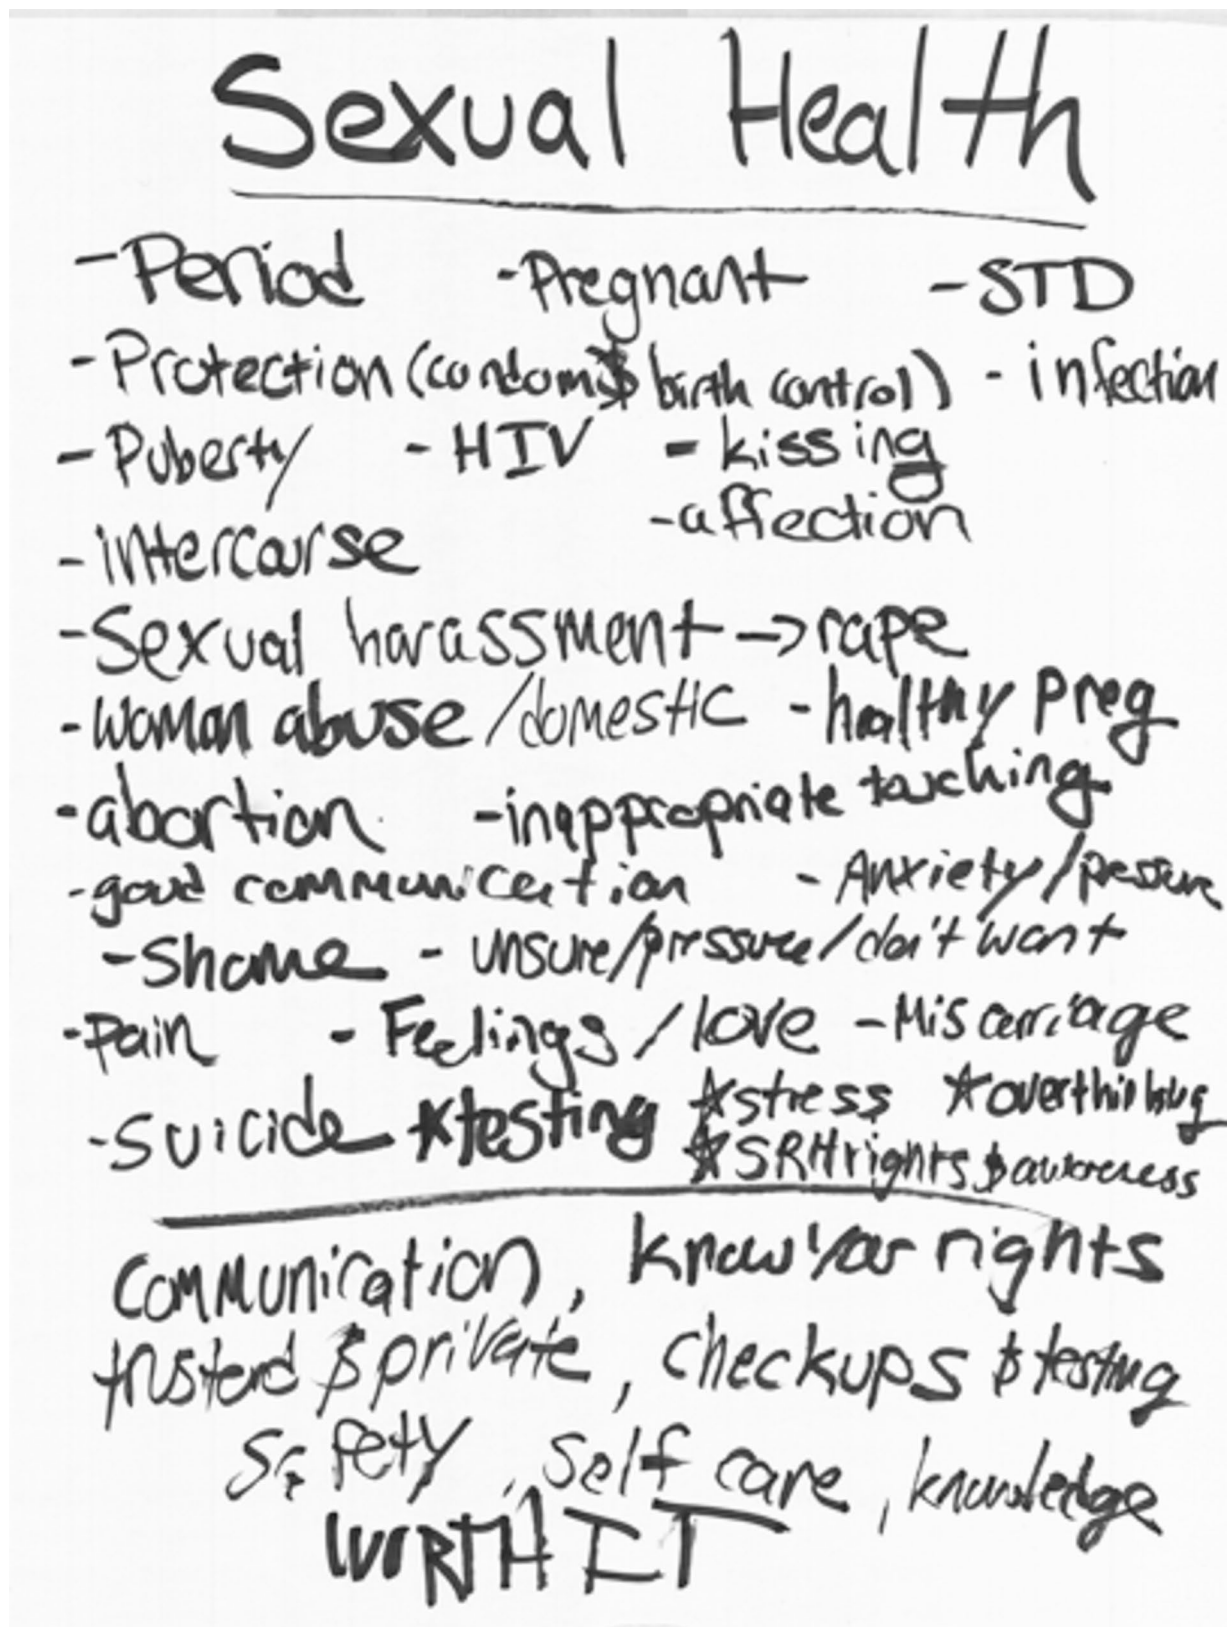 Sexual Health
- Period - Pregnant - STD
- Protection (condoms & birth control) - infection
- Puberty - HIV - kissing
- affection
- intercourse
- Sexual harassment → rape
- woman abuse / domestic - healthy preg
- abortion - inappropriate touching
- good communication - Anxiety / pressure
- Shame - unsure / pressure / don't want
- Pain - Feelings / love - Miscarriage
- Suicide ★ testing ★ stress ★ overthinking
★ SRH rights & awareness
Communication, know your rights
trusted & private, checkups & testing
Safety, Self care, knowledge
WORTH IT